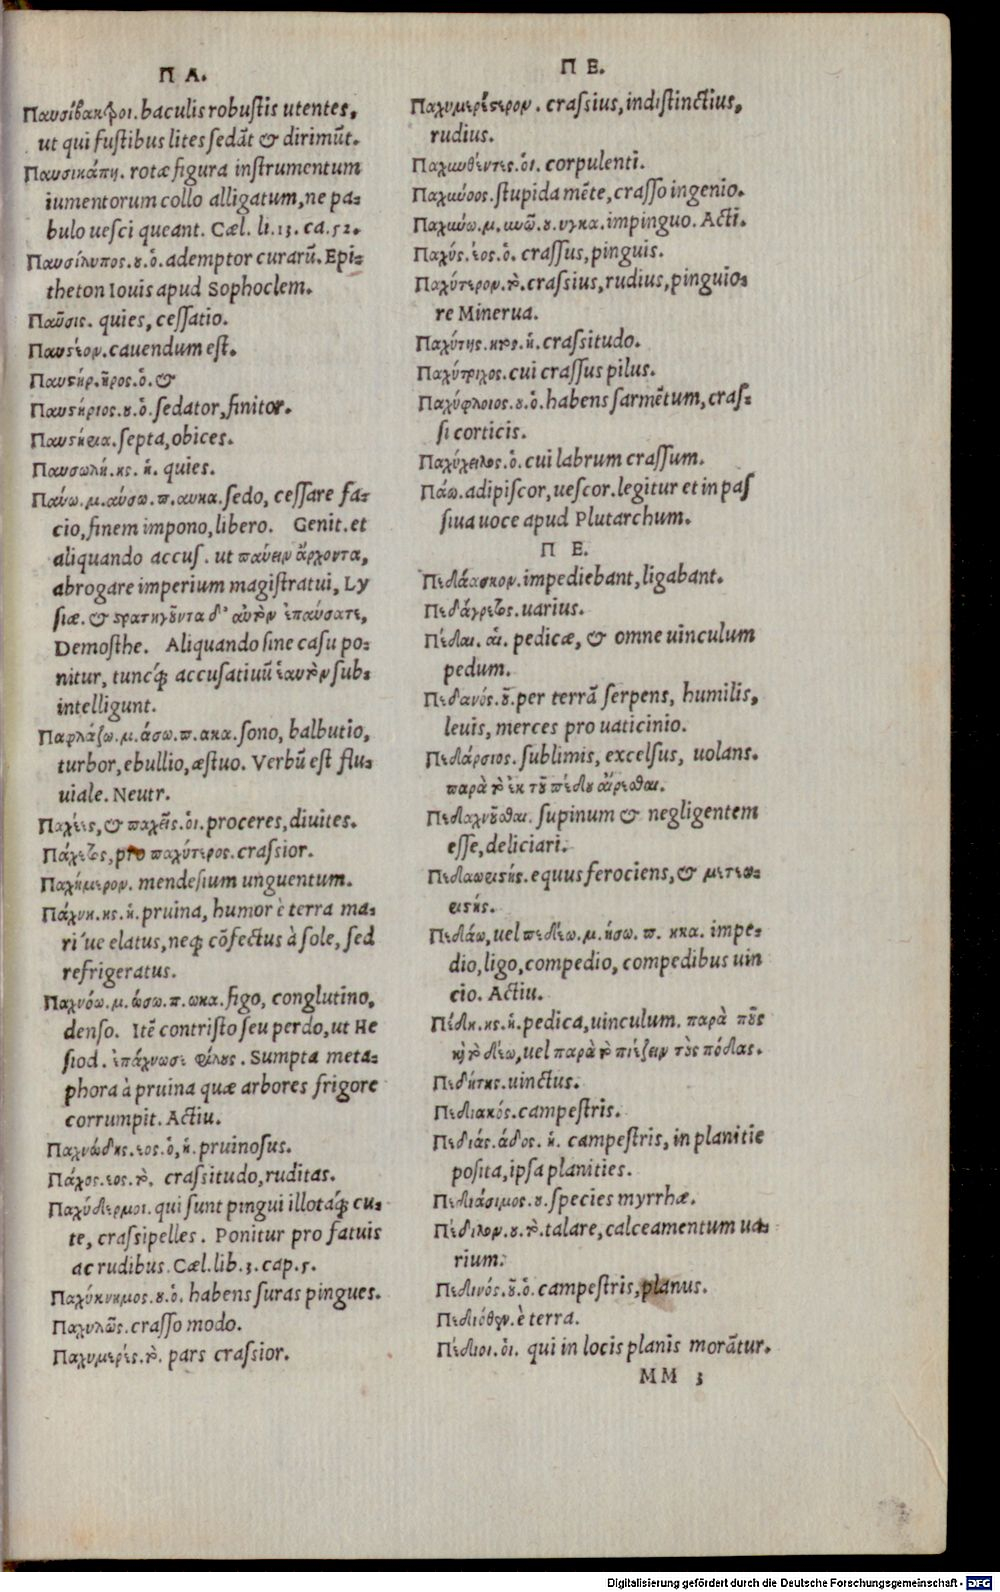 Π Α.
Παυσίβακτροι. baculis robustis utentes,
ut qui fustibus lites sedāt & dirimūt.
Παυσικάπη. rotæ figura instrumentum
iumentorum collo alligatum, ne pa-
bulo uesci queant. Cæl. li.13. ca.52.
Παυσίλυπος.ου.ὁ. ademptor curarū. Epi-
theton Iouis apud Sophoclem.
Παῦσις. quies, cessatio.
Παυστέον. cauendum est.
Παυστήρ.ῆρος.ὁ. &
Παυστήριος.ου.ὁ. sedator, finitor.
septa, obices.
Παυσωλή.ης.ἡ. quies.
Παύω.μ.αύσω.π.αυκα. sedo, cessare fa-
cio, finem impono, libero. Genit. et
aliquando accus. ut παύειν ἄρχοντα,
abrogare imperium magistratui, Ly
siæ. & στρατηγοῦντα δ' αὐτὸν ἐπαύσατε,
Demosthe. Aliquando sine casu po-
nitur, tuncq́; accusatiuū ἑαυτὸν sub-
intelligunt.
Παφλάζω.μ.άσω.π.ακα. sono, balbutio,
turbor, ebullio, æstuo. Verbū est flu-
uiale. Neutr.
Παχέες, & παχεῖς.ὁι. proceres, diuites.
Πάχετος, pro παχύτερος. crassior.
Παχήμερον. mendesium unguentum.
Πάχνη.ης.ἡ. pruina, humor è terra ma-
ri'ue elatus, neq; cōfectus à sole, sed
refrigeratus.
Παχνόω.μ.ώσω.π.ωκα. figo, conglutino,
denso. Itē contristo seu perdo, ut He
siod. ἐπάχνωσε φίλους. Sumpta meta-
phora à pruina quæ arbores frigore
corrumpit. Actiu.
Παχνώδης.εος.ὁ,ἡ. pruinosus.
Πάχος.εος.τὸ. crassitudo, ruditas.
Παχύδερμοι. qui sunt pingui illotaq́; cu-
te, crassipelles. Ponitur pro fatuis
ac rudibus. Cæl. lib.3. cap.5.
Παχύκνημος.ου.ὁ. habens suras pingues.
Παχυλῶς. crasso modo.
Παχυμερές.τὸ. pars crassior.
Π Ε.
Παχυμερέστερον. crassius, indistinctius,
rudius.
Παχυνθέντες.ὁι. corpulenti.
Παχύνοος. stupida mēte, crasso ingenio.
Παχύνω.μ.υνῶ. impinguo. Acti.
Παχύς.έος.ὁ. crassus, pinguis.
Παχύτερον.τὸ. crassius, rudius, pinguio-
re Minerua.
Παχύτης.ητος.ἡ. crassitudo.
Παχύτριχος. cui crassus pilus.
Παχύφλοιος.ου.ὁ. habens sarmētum, cras-
si corticis.
Παχύχειλος.ὁ. cui labrum crassum.
Πάω. adipiscor, uescor. legitur et in pas
siua uoce apud Plutarchum.
Π Ε.
Πεδάασκον. impediebant, ligabant.
Πεδάγρετος. uarius.
Πέδαι.ἁι. pedicæ, & omne uinculum
pedum.
Πεδανός.οῦ. per terrā serpens, humilis,
leuis, merces pro uaticinio.
Πεδάρσιος. sublimis, excelsus, uolans.
παρὰ τὸ ἐκ τοῦ πέδου αἴρεσθαι.
Πεδαχνοῦσθαι. supinum & negligentem
esse, deliciari.
equus ferociens, &
Πεδάω, uel πεδέω.μ.ήσω.π. ηκα. impe-
dio, ligo, compedio, compedibus uin
cio. Actiu.
Πέδη.ης.ἡ. pedica, uinculum. παρὰ ποῦς
καὶ τὸ δέω, uel παρὰ τὸ πιέζειν τοὺς πόδας.
Πεδήτης. uinctus.
Πεδιακός. campestris.
Πεδιάς.άδος. ἡ. campestris, in planitie
posita, ipsa planities.
Πεδιάσιμος.ου. species myrrhæ.
Πέδιλον.ου.τὸ. talare, calceamentum ua-
rium.
Πεδινός.οῦ.ὁ. campestris, planus.
Πεδιόθεν. è terra.
Πέδιοι.ὁι. qui in locis planis morātur.
MM 3
Digitalisierung gefördert durch die Deutsche Forschungsgemeinschaft - DFG